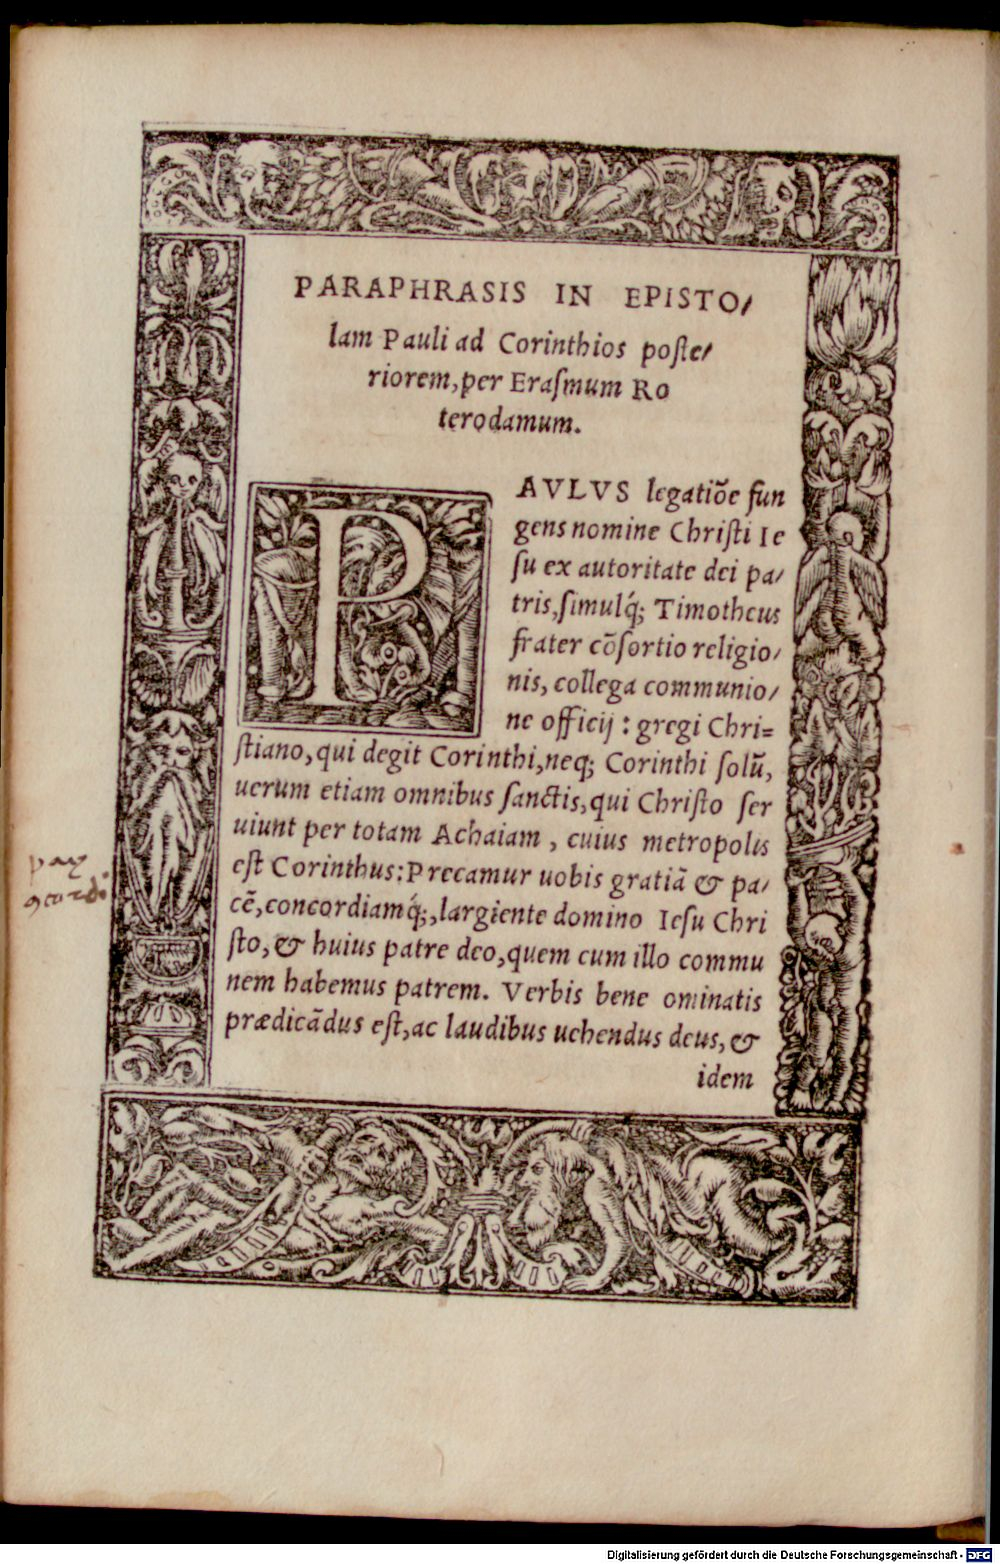 PARAPHRASIS IN EPISTO/
lam Pauli ad Corinthios poſte/
riorem, per Eraſmum Ro
terodamum.
PAVLVS legatiōe fun
gens nomine Chriſti Ie
ſu ex autoritate dei pa/
tris, ſimulq́; Timotheus
frater cōſortio religio/
nis, collega communio/
ne officij : gregi Chri=
ſtiano, qui degit Corinthi, neq; Corinthi ſolū,
uerum etiam omnibus ſanctis, qui Chriſto ſer
uiunt per totam Achaiam , cuius metropolis
eſt Corinthus: Precamur uobis gratiā & pa/
cē, concordiamq́;, largiente domino Ieſu Chri
ſto, & huius patre deo, quem cum illo commu
nem habemus patrem. Verbis bene ominatis
prædicādus eſt, ac laudibus uehendus deus, &
idem
pax
Digitalisierung gefördert durch die Deutsche Forschungsgemeinschaft - DFG